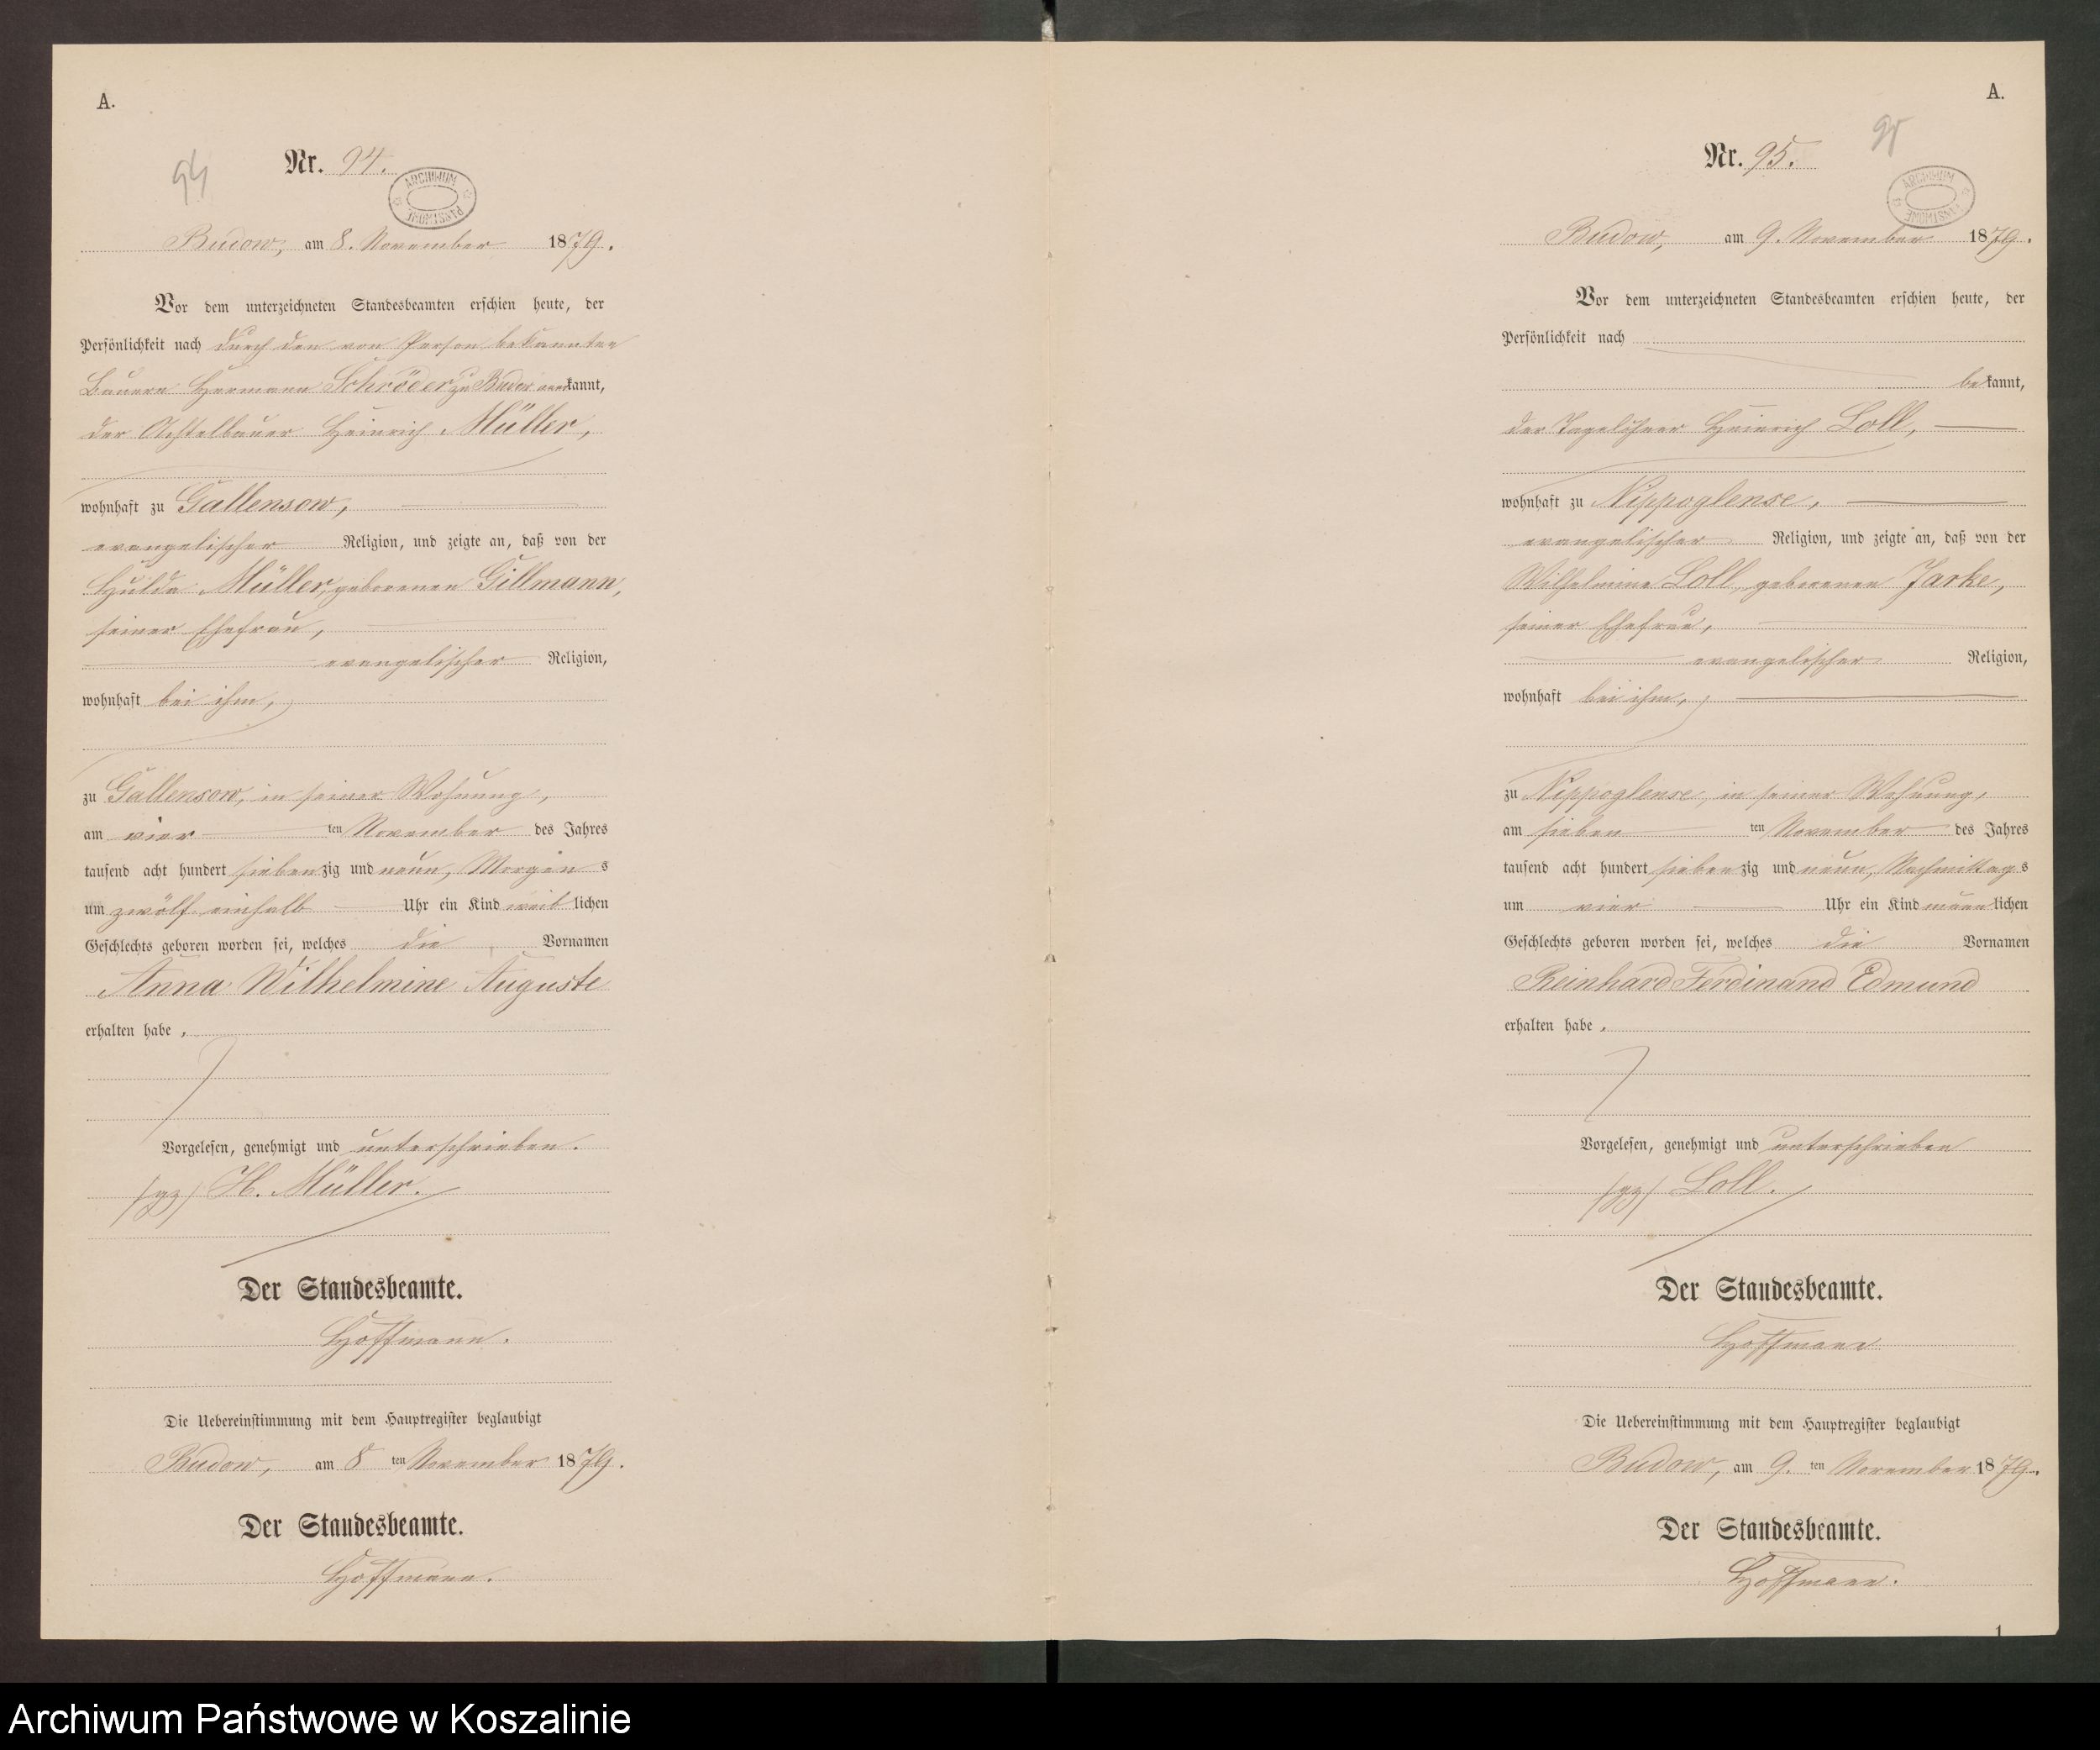 A.
94
Nr. 94.
ARCHIWUM PAŃSTWOWE
Budow, am 8. November 1879.
Vor dem unterzeichneten Standesbeamten erschien heute, der
Persönlichkeit nach durch den von Person bekannten
Bauern Hermann Schröder zu Budow anerkannt,
der Achtelbauer Heinrich Müller,
wohnhaft zu Gallensow,
evangelischer Religion, und zeigte an, daß von der
Hulda Müller, geborenen Gillmann,
seiner Ehefrau,
evangelischer Religion,
wohnhaft bei ihm,
zu Gallensow, in seiner Wohnung,
am vier ten November des Jahres
tausend acht hundert siebenzig und neun, Morgens
um zwölf einhalb Uhr ein Kind weiblichen
Geschlechts geboren worden sei, welches die Vornamen
Anna Wilhelmine Auguste
erhalten habe,
Vorgelesen, genehmigt und unterschrieben.
(gz) H. Müller.
Der Standesbeamte.
Hoffmann.
Die Uebereinstimmung mit dem Hauptregister beglaubigt
Budow, am 8 ten November 1879.
Der Standesbeamte.
Hoffmann.
A.
95
Nr. 95.
ARCHIWUM PAŃSTWOWE
Budow, am 9. November 1879.
Vor dem unterzeichneten Standesbeamten erschien heute, der
Persönlichkeit nach
bekannt,
der Tagelöhner Heinrich Loll,
wohnhaft zu Nippoglense,
evangelischer Religion, und zeigte an, daß von der
Wilhelmine Loll, geborenen Jarke,
seiner Ehefrau,
evangelischer Religion,
wohnhaft bei ihm,
zu Nippoglense, in seiner Wohnung,
am sieben ten November des Jahres
tausend acht hundert siebenzig und neun, Nachmittags
um vier Uhr ein Kind männlichen
Geschlechts geboren worden sei, welches die Vornamen
Reinhard Ferdinand Edmund
erhalten habe,
Vorgelesen, genehmigt und unterschrieben
(gz) Loll.
Der Standesbeamte.
Hoffmann
Die Uebereinstimmung mit dem Hauptregister beglaubigt
Budow, am 9. ten November 1879.
Der Standesbeamte.
Hoffmann.
1
Archiwum Państwowe w Koszalinie